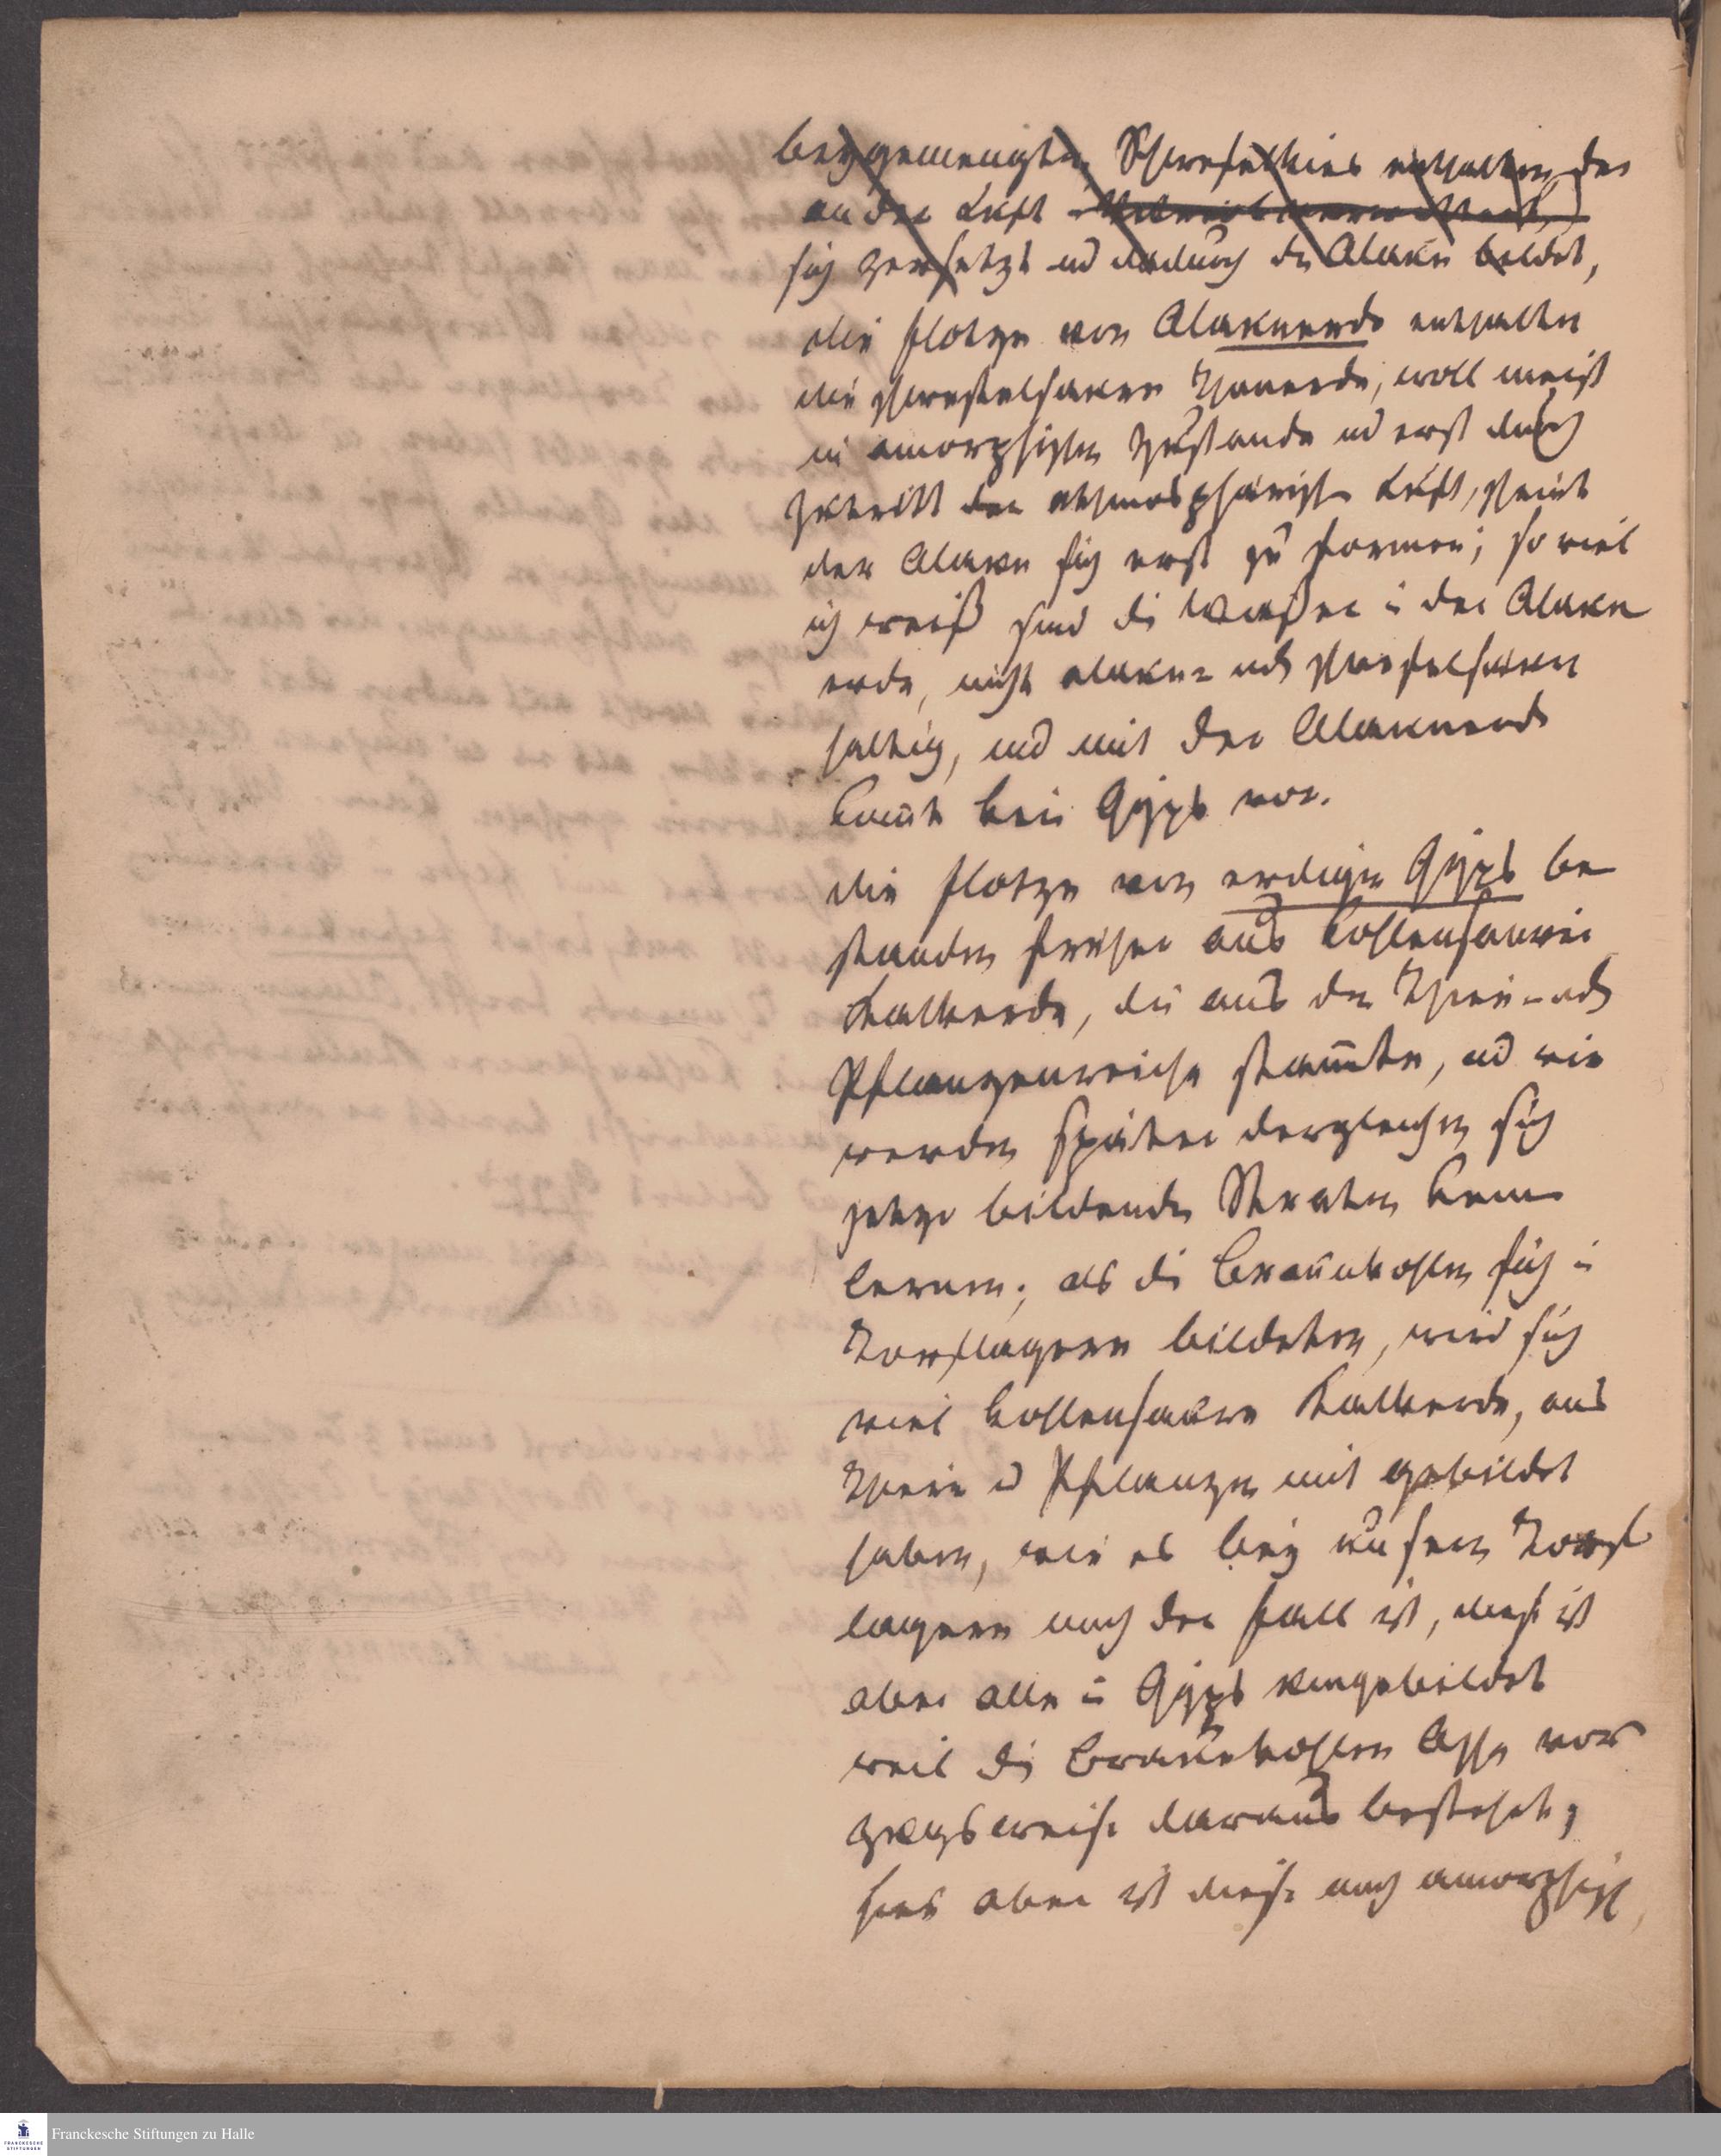 beygemengten Schwefelkies enthalten, der
an der Luft
sich zersetzt und dadurch den Alaun bildet,
die flotze von Alaunerde enthalten
die schwefelsauren Thonerde, woll meist
in amorphischen Zustande und erst durch
Zutritt der athmosphärischen Luft, scheint
der Alaun sich erst zu formen; so viel
ich weiß sind die Waßer in der Alaun
erde, nicht alaun= und schwefelsauer
haltig, und mit der Alaunerde
kom̄t kein Gyps vor.
die flotze von erdigen Gyps be
standen früher aus kohlensaurer
Kalkerde, die aus den Thier- und
Pflanzenreiche stam̄te, und wir
werden später dergleichen sich
jetzo bildende Straten kenn
lernen; als die Braunkohlen sich in
Torflagern bildeten, wird sich
viel kohlensaure Kalkerde, aus
Thier u Pflanzen mit gebildet
haben, wie es bey unsern Torf
lagern noch der fall ist, diese ist
aber alle in Gyps umgebildet
weil die Braunkohlen Asche vor
zugsweise daraus besteht;
hier aber ist diese noch amorphisch,
Franckesche Stiftungen zu Halle